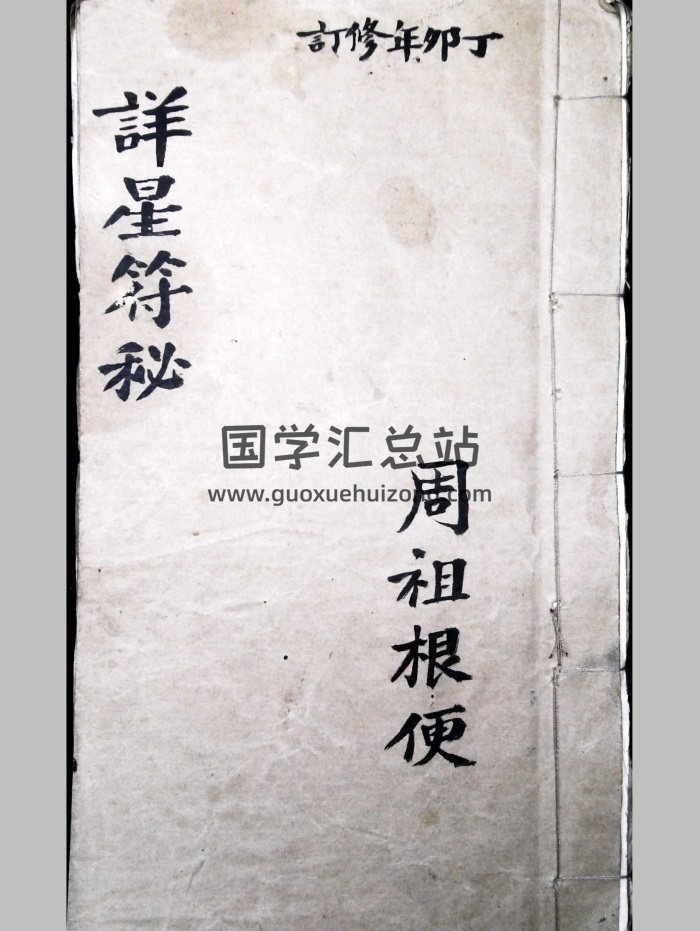 丁卯年修訂
詳星符秘
国学汇总站
www.guoxuehuizong.com
周祖根便